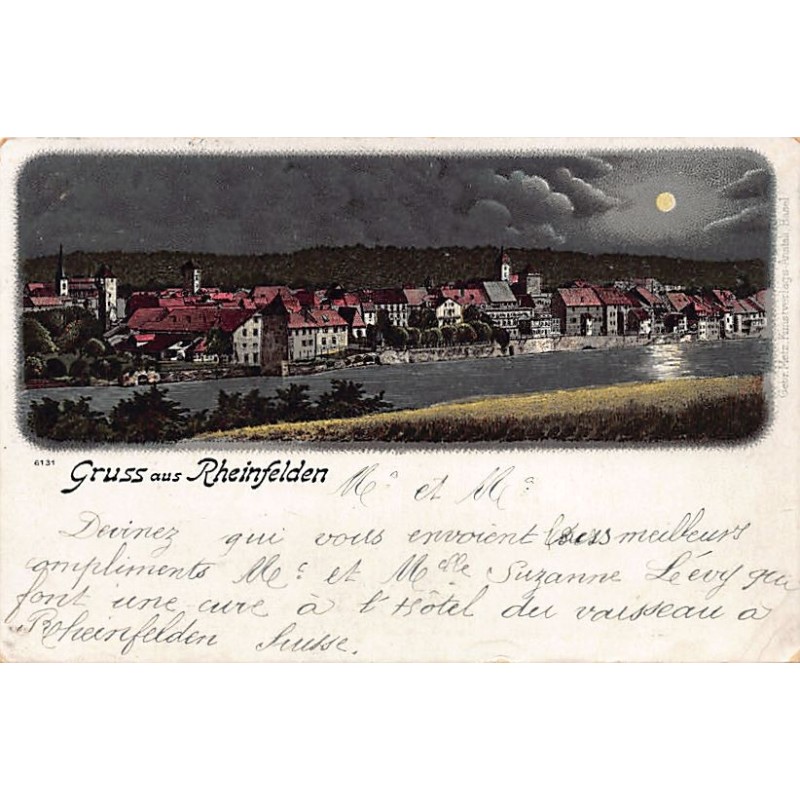 Gebr. Metz, Kunstverlags-Anstalt, Basel
6131
Gruss aus Rheinfelden
Mᵃ et Mᵃ
Devinez qui vous envoient leurs meilleurs
compliments Mᵉ et Mᵉˡˡᵉ Suzanne Lévy qui
font une cure à l'Hôtel du vaisseau à
Rheinfelden Suisse.